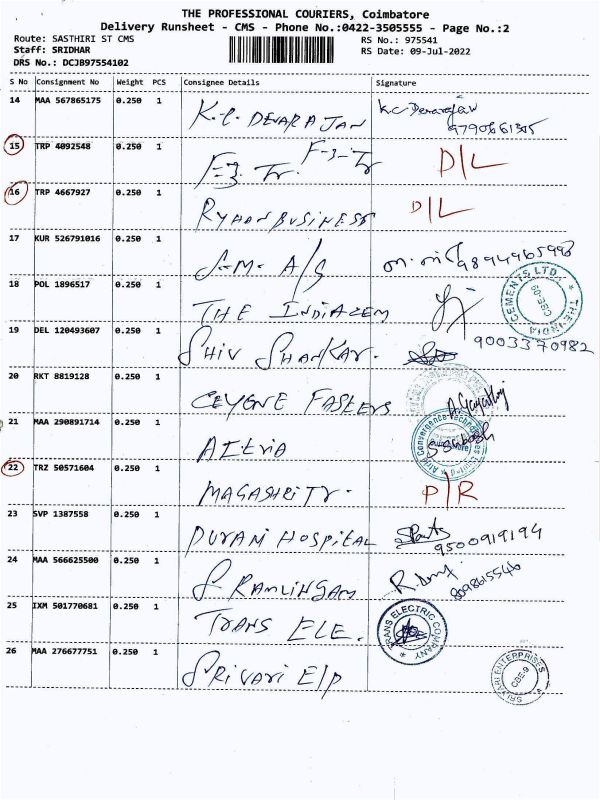 THE PROFESSIONAL COURIERS, Coimbatore
Delivery Runsheet - CMS - Phone No.:0422-3505555 - Page No.:2
Route: SASTHIRI ST CMS RS No.: 975541
Staff: SRIDHAR RS Date: 09-Jul-2022
DRS No.: DCJB97554102
S No Consignment No Weight PCS Consignee Details Signature
14 MAA 567865175 0.250 1 K.C. DEVARAJAN K.C. Devarajan
15 TRP 4092548 0.250 1 F-3-Tr F-3-Tr D/L
16 TRP 4667927 0.250 1 RYHAN BUSINESS D/L
17 KUR 526791016 0.250 1 S-M- A/S 9894965998
18 POL 1896517 0.250 1 THE INDIACEM
CEMENTS LTD. * THE INDIA * CBE-09
19 DEL 120493607 0.250 1 SHIV SHANKAR. 9003370982
20 RKT 8819128 0.250 1
21 MAA 290891714 0.250 1
22 TRZ 50571604 0.250 1 P/R
23 SVP 1387558 0.250 1 HOSPITAL 9500919194
24 MAA 566625500 0.250 1 S. RAMLINGAM
25 IXM 501770681 0.250 1 TRANS ELE.
TRANS ELECTRIC COMPANY *
26 MAA 276677751 0.250 1 SRIVARI E/P
SRIVARI ENTERPRISES CBE-9